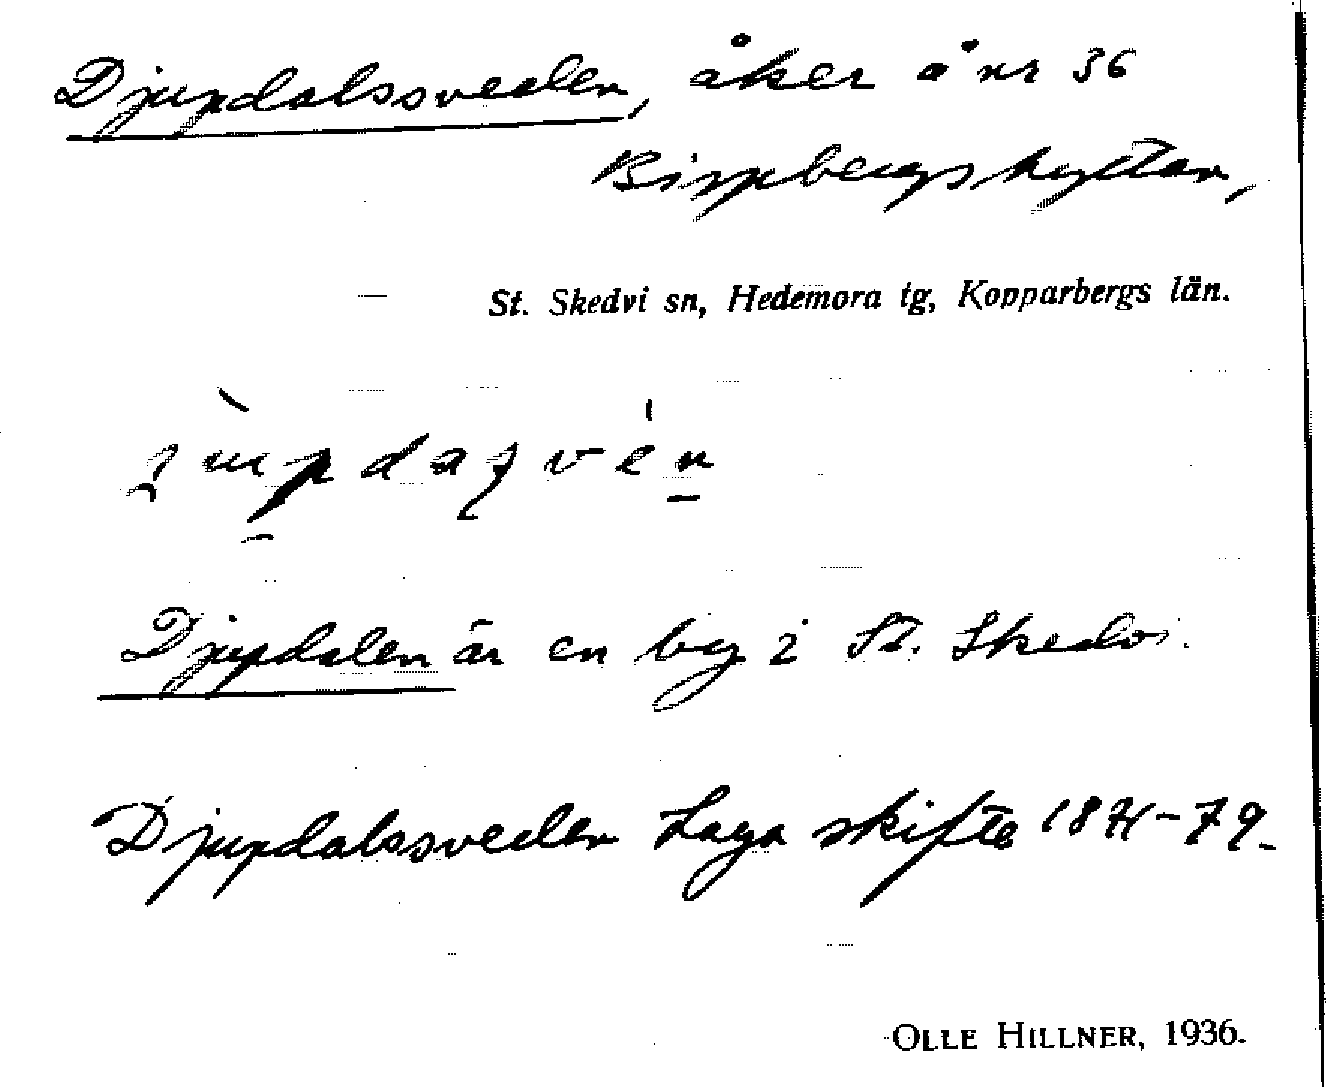 Djupdalssveden, åker å nr 36
Bispbergshyttan,
St. Skedvi sn, Hedemora tg, Kopparbergs län.
Djupdalen är en by i St. Skedvi.
Djupdalssveden Laga skifte 1871-79.
OLLE HILLNER, 1936.